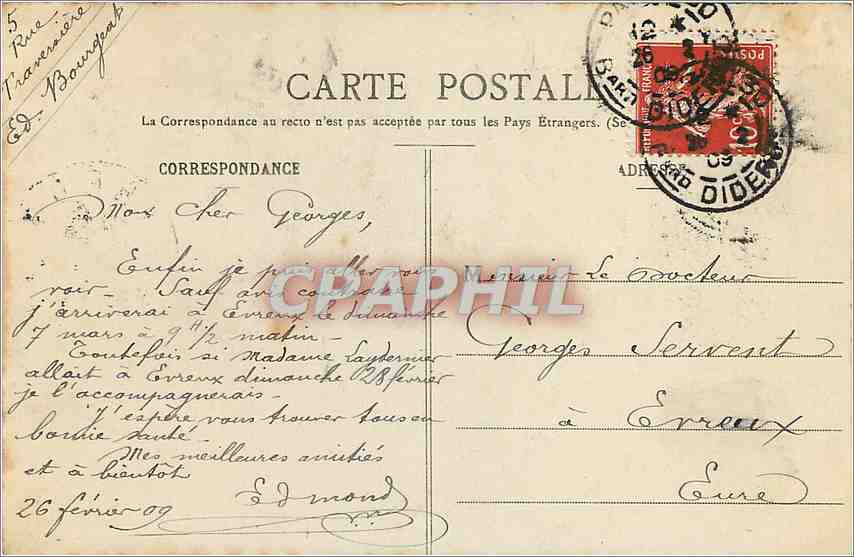 5
Rue
Traversière
Ed. Bourgeat
CARTE POSTALE
La Correspondance au recto n'est pas acceptée par tous les Pays Étrangers. (Se
CORRESPONDANCE
ADRESSE
Mon cher Georges,
Enfin je puis aller vous
voir - Sauf avis contraire
j'arriverai à Evreux le dimanche
7 mars à 9 H 1/2 matin -
Toutefois si Madame
allait à Evreux dimanche 28 février
je l'accompagnerais -
J'espère vous trouver tous en
bonne santé -
Mes meilleures amitiés
et à bientôt
Edmond
26 février 09
Monsieur Le Docteur
Georges Servent
à Evreux
Eure
POSTES
10
12 *
26 2
09
BARD DIDEROT
CPAPHIL